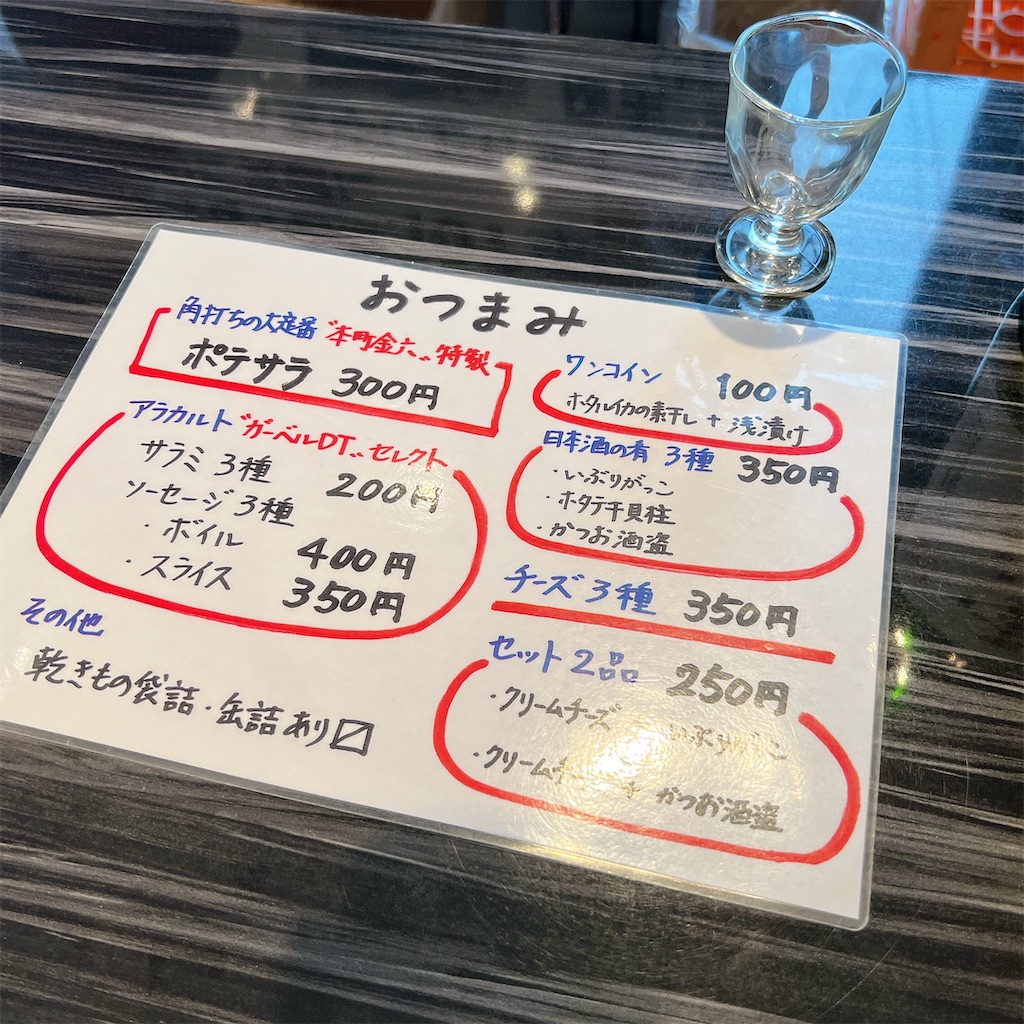 おつまみ
角打ちの大定番 〝本町金六〟特製
ポテサラ 300円
アラカルト 〝ガーベルDT〟セレクト
サラミ 3種 200円
ソーセージ 3種
・ボイル 400円
・スライス 350円
その他
乾きもの袋詰・缶詰あり〼
ワンコイン 100円
ホタルイカの素干し + 浅漬け
日本酒の肴 3種 350円
・いぶりがっこ
・ホタテ干貝柱
・かつお酒盗
チーズ 3種 350円
セット 2品 250円
・クリームチーズ いぶりがっこ
・クリームチーズ かつお酒盗